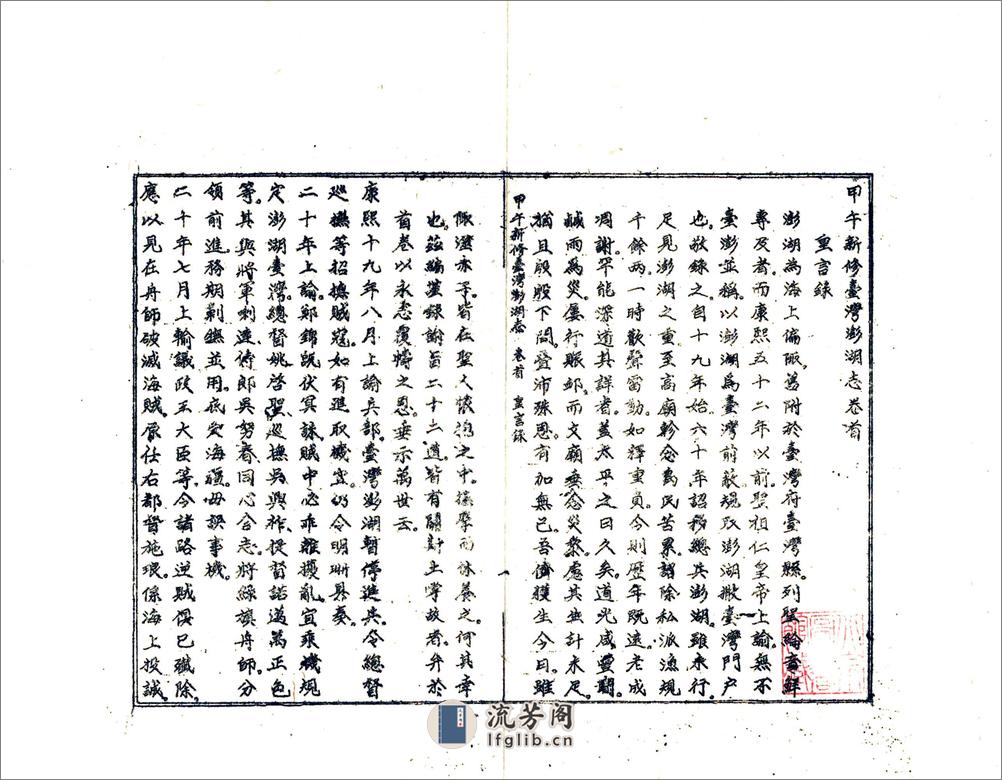 甲午新修臺灣澎湖志卷首
皇言錄
澎湖為海上偏陬。舊附於臺灣府臺灣縣。列聖綸音鮮
專及者。而康熙五十二年以前。聖祖仁皇帝上諭。無不
臺澎並稱。以澎湖為臺灣前蔽。規取澎湖。撤臺灣門戶
也。敬錄之。自十九年始。六十年詔移總兵澎湖。雖未行。
足見澎湖之重。至高廟軫念為民苦累。詔除私派漁規
千餘兩。一時歡聲雷動。如釋重負。今則歷年既遠。老成
凋謝。罕能深道其詳者。蓋太平之日久矣。道光咸豐間。
鹹雨為災。屢行賑卹。而文廟垂念災黎。慮其生計未足。
猶且殷殷下問。疊沛殊恩。有加無已。吾儕獲生今日。雖
甲午新修臺灣澎湖志 卷首 皇言錄
陬澨赤子。皆在聖人懷抱之中。撫摩而詠養之。何其幸
也。茲編謹錄諭旨二十二道。皆有關封土掌故者。弁於
首卷。以永志覆幬之恩。垂示萬世云。
康熙十九年八月上諭兵部。臺灣澎湖暫停進兵。令總督
巡撫等招撫賊寇。如有進取機宜。仍令明晰具奏。
二十年上諭。鄭錦既伏冥誅。賊中必乖離擾亂。宜乘機規
定澎湖臺灣。總督姚啓聖。巡撫吳興祚。提督諾邁萬正色
等。其與將軍喇達。侍郎吳努春。同心合志。將綠旗舟師。分
領前進。務期剿撫並用。底定海疆。毋誤事機。
二十年七月上諭議政王大臣等。今諸路逆賊俱已殲除。
應以見在舟師破滅海賊。原任右都督施琅。係海上投誠。
流芳阁
lfglib.cn